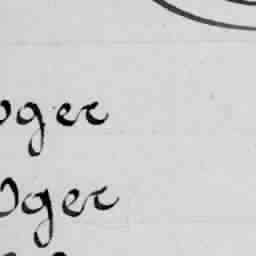 oger
Oger